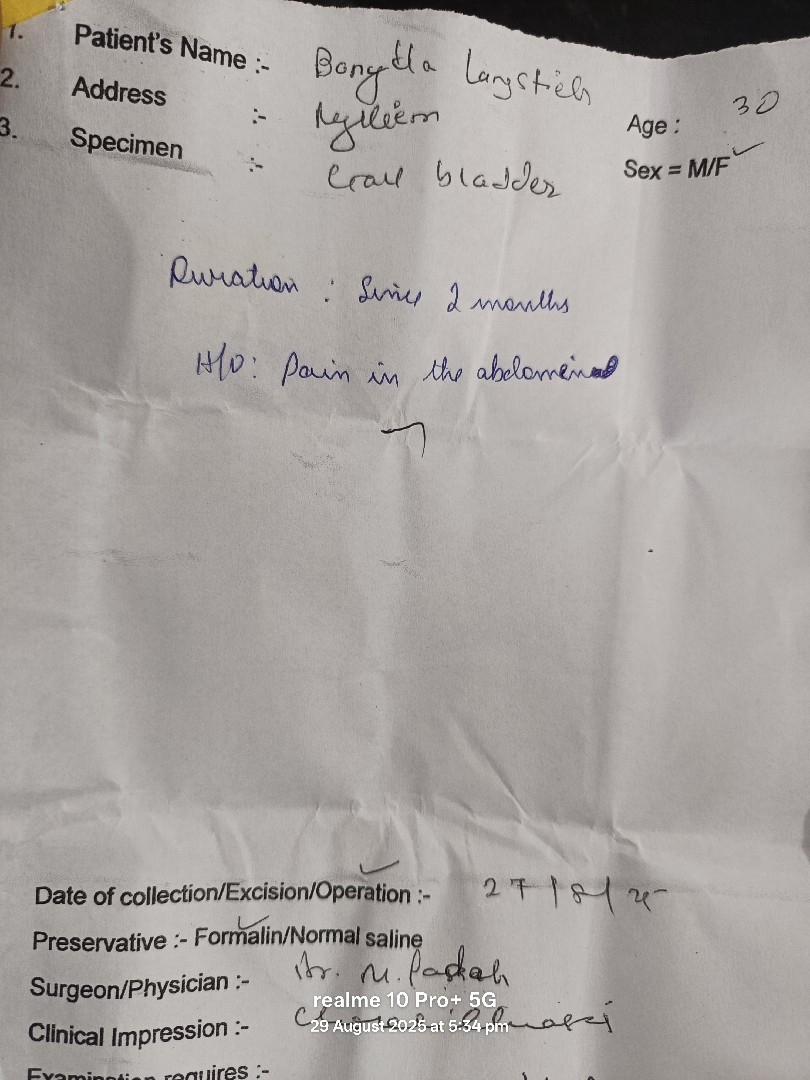 1. Patient's Name :- Bongtla Langstieh
2. Address :-
Age : 30
3. Specimen :- Gall bladder
Sex = M/F
Duration : Since 2 months
H/O: Pain in the abdomen
Date of collection/Excision/Operation :- 27/8/25
Preservative :- Formalin/Normal saline
Surgeon/Physician :- Dr. M.
realme 10 Pro+ 5G
Clinical Impression :-
29 August 2025 at 5:34 pm
Examination requires :-